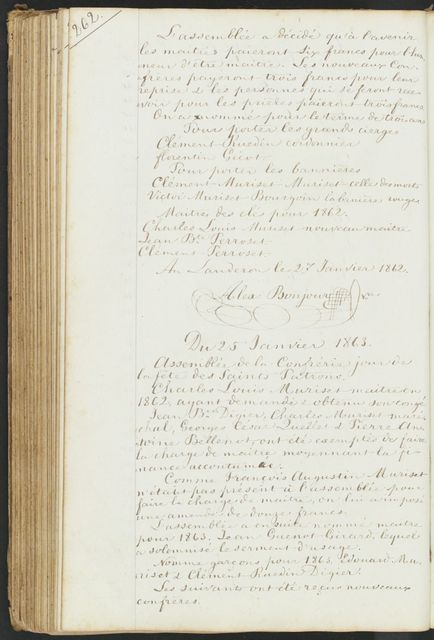 262.
L'assemblée a décidé qu'à l'avenir
les maitres paieront six francs pour l'hon
neur d'être maitre. Les nouveaux Con
frères payeront trois francs pour leur
reprise & les personnes qui se feront rece
voir pour les prières paieront trois francs
On a nommé pour le terme de trois ans
Pour porter les grands cierges
Clément Ruedin cordonnier
florentin Gicot
Pour porter les bannières
Clément Muriset Muriset celle des morts
Victor Muriset Bourgoin la banière rouge
Maitres des clé pour 1862.
Charles Louis Muriset nouveau maitre
Jean Bte Perroset
Clément Perroset
Au Landeron le 27 Janvier 1862.
Alex Bonjour
Du 25 Janvier 1863.
Assemblée de la Confrérie, jour de
la fête des Saints Patrons,
Charles Louis Muriset maitre en
1862, ayant demandé & obtenu son congé
Jean Bte Digier, Charles Muriset maré
chal, Georges César Quellet & Pierre An
toine Bellenot, ont été exemptés de faire
la charge de maitre moyennant la fi
nance accoutumée.
Comme François Augustin Muriset
n'était pas présent à l'assemblée pour
faire la charge de maitre, on lui a imposé
une amende de douze francs.
L'assemblée a ensuite nommé maitre
pour 1863. Jean Guenot Girard, lequel
a solemnisé le serment d'usage.
Nommé garçons pour 1863, Edouard Mu
riset & Clément Ruedin Digier.
Les suivants ont été reçus nouveaux
confrères.